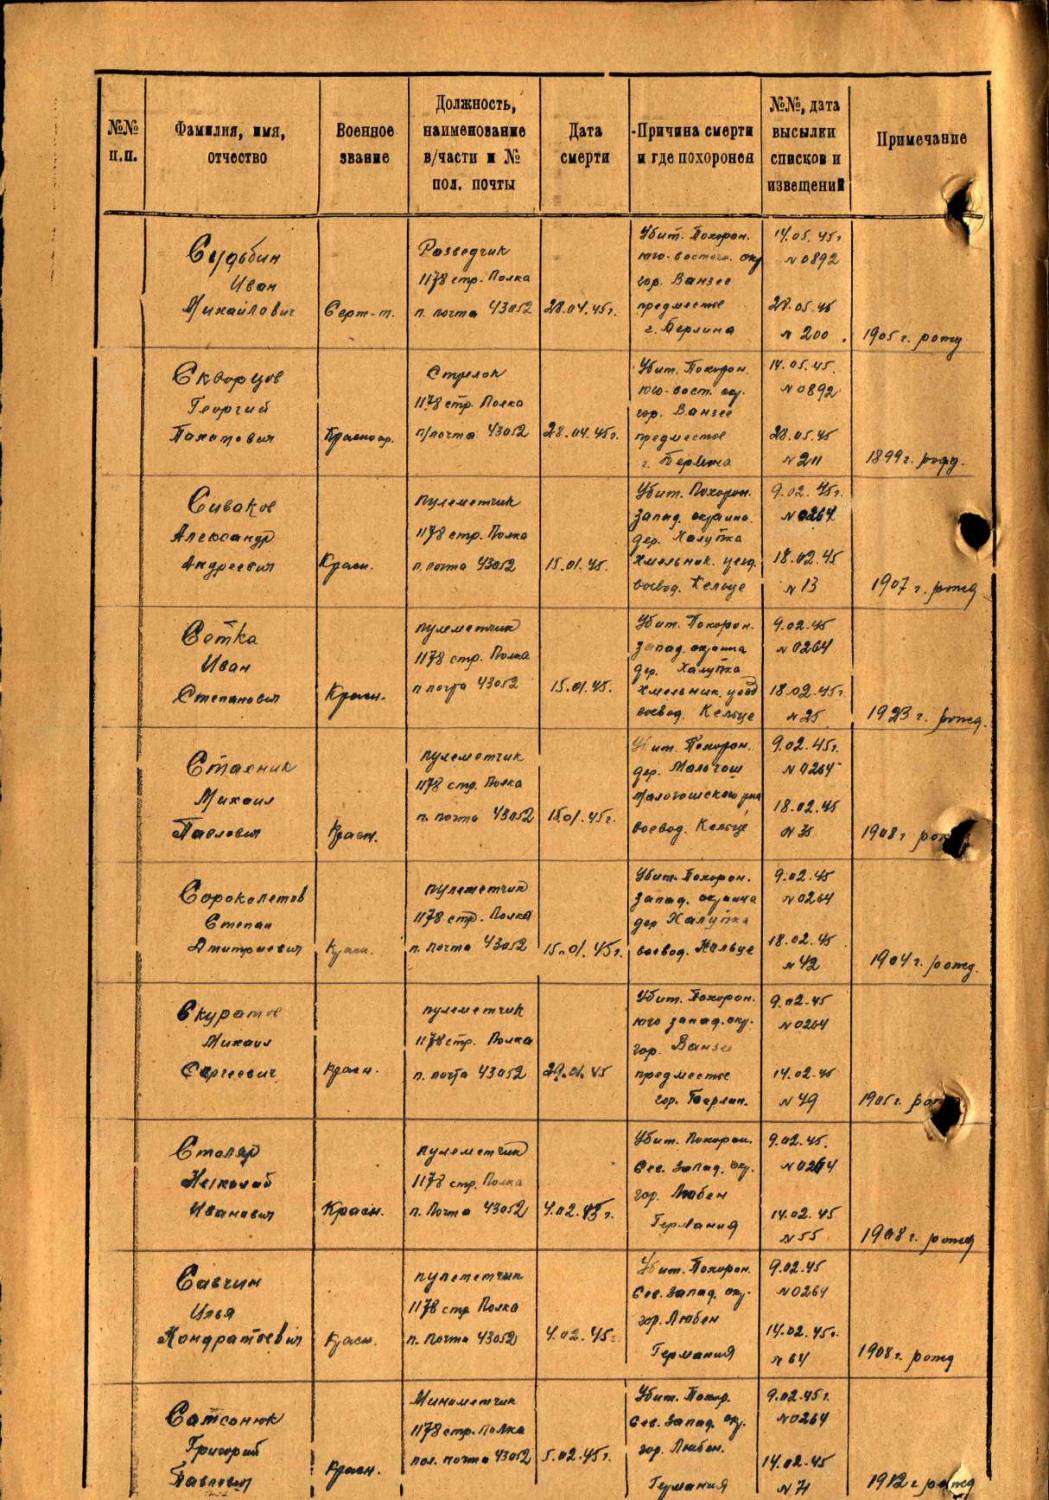 №№ п.п.
Фамилия, имя, отчество
Военное звание
Должность, наименование в/части и № пол. почты
Дата смерти
Причина смерти и где похоронен
№№, дата высылки списков и извещений
Примечание
Судьбин Иван Михайлович
Серж-т.
Разведчик 1178 стр. Полка п. почта 43052
28.04.45г.
Убит. Похорон. юго-восточн. окр гор. Ванзее предместье г. Берлина
14.05.45г №0892 28.05.45 № 200
1905 г. рожд
Скворцов Георгий
Красноар.
Стрелок 1178 стр. Полка п/почта 43052
28.04.45г.
Убит. Похорон. юго-вост. окр. гор. Ванзее предместье г. Берлина
14.05.45. №0892 28.05.45 №211
1899 г. рожд.
Сиваков Александр Андреевич
Красн.
пулеметчик 1178 стр. Полка п. почта 43052
15.01.45.
Убит. Похорон. Запад. окраина. дер. Халупка Хмельник. уезд. воевод. Кельце
9.02.45г. №0264 18.02.45 №13
1907 г. рожд
Сотка Иван Степанович
Красн.
пулеметчик 1178 стр. Полка п почта 43052
15.01.45.
Убит. Похорон. запад. окраина дер. Халупка Хмельник. уезд воевод. Кельце
9.02.45 №0264 18.02.45г. №25
1923 г. рожд.
Михаил Павлович
Красн.
пулеметчик 1178 стр. Полка п. почта 43052
15.01.45г.
Убит. Похорон. дер. Малогош Малогошского воевод. Кельце
9.02.45г. №0264 18.02.45 №35
1908 г рож
Сороколетов Степан Дмитриевич
Красн.
пулеметчик 1178 стр. Полка п. почта 43052
15.01.45г.
Убит. Похорон. запад. окраина дер Халупка воевод. Кельце
9.02.45 №0264 18.02.45 №42
1904 г. рожд.
Скуратов Михаил Сергеевич
Красн.
пулеметчик 1178 стр. Полка п. почта 43052
29.01.45
Убит. Похорон. юго запад. окр. гор. Ванзе предместье гор. Берлин.
9.02.45 №0264 14.02.45 №49
1905 г. рож
Столяр Николай Иванович
Красн.
пулеметчик 1178 стр. Полка п. Почта 43052
4.02.45 г.
Убит. Похорон. Сев. Запад. окр. гор. Любен Германия
9.02.45. №0264 14.02.45 №55
1908 г. рожд
Савчин Илья Кондратьевич
Красн.
пулеметчик 1178 стр Полка п. Почта 43052
4.02.45г.
Убит. Похорон. Сев. Запад. окр. гор. Любен Германия
9.02.45 №0264 14.02.45г. №64
1908 г. рожд
Сатсонюк Григорий Павлович
Красн.
Минометчик 1178 стр. Полка пол. почта 43052
5.02.45г.
Убит. Похор. Сев. Запад. окр. гор. Любен. Германия
9.02.45г. №0264 14.02.45 №71
1912 г рожд